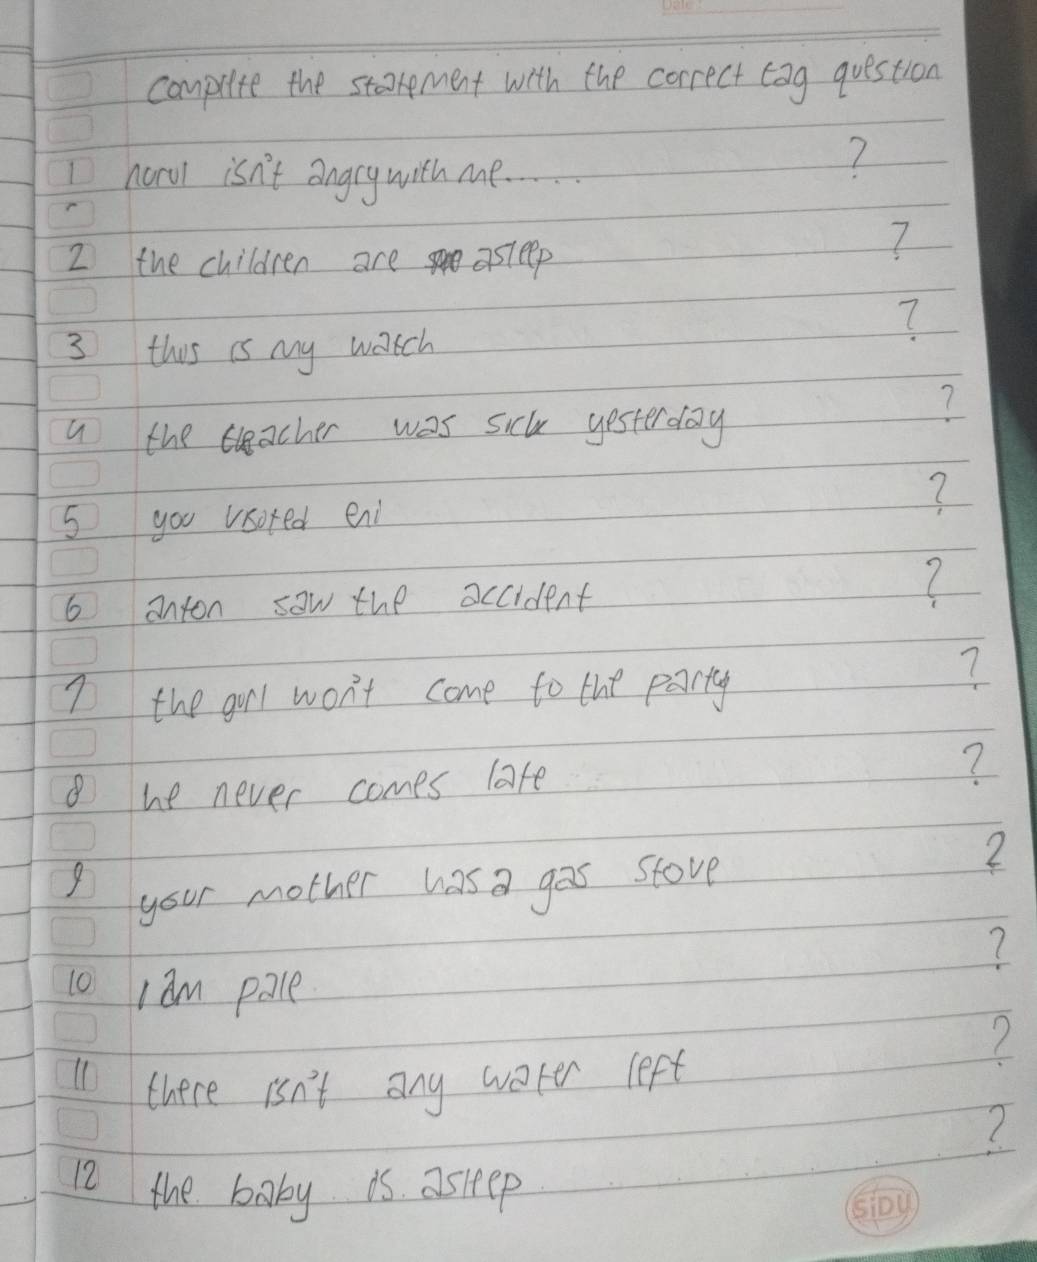 Date:
complete the statement with the correct tag question
1 norul isn't angry with me...... ?
2 the children are asleep ?
3 this is my watch ?
4 the teacher was sick yesterday ?
5 you visited eni ?
6 anton saw the accident ?
7 the girl won't come to the party ?
8 he never comes late ?
9 your mother has a gas stove ?
10 I am pale ?
11 there isn't any water left ?
12 the baby is asleep ?
SiDU